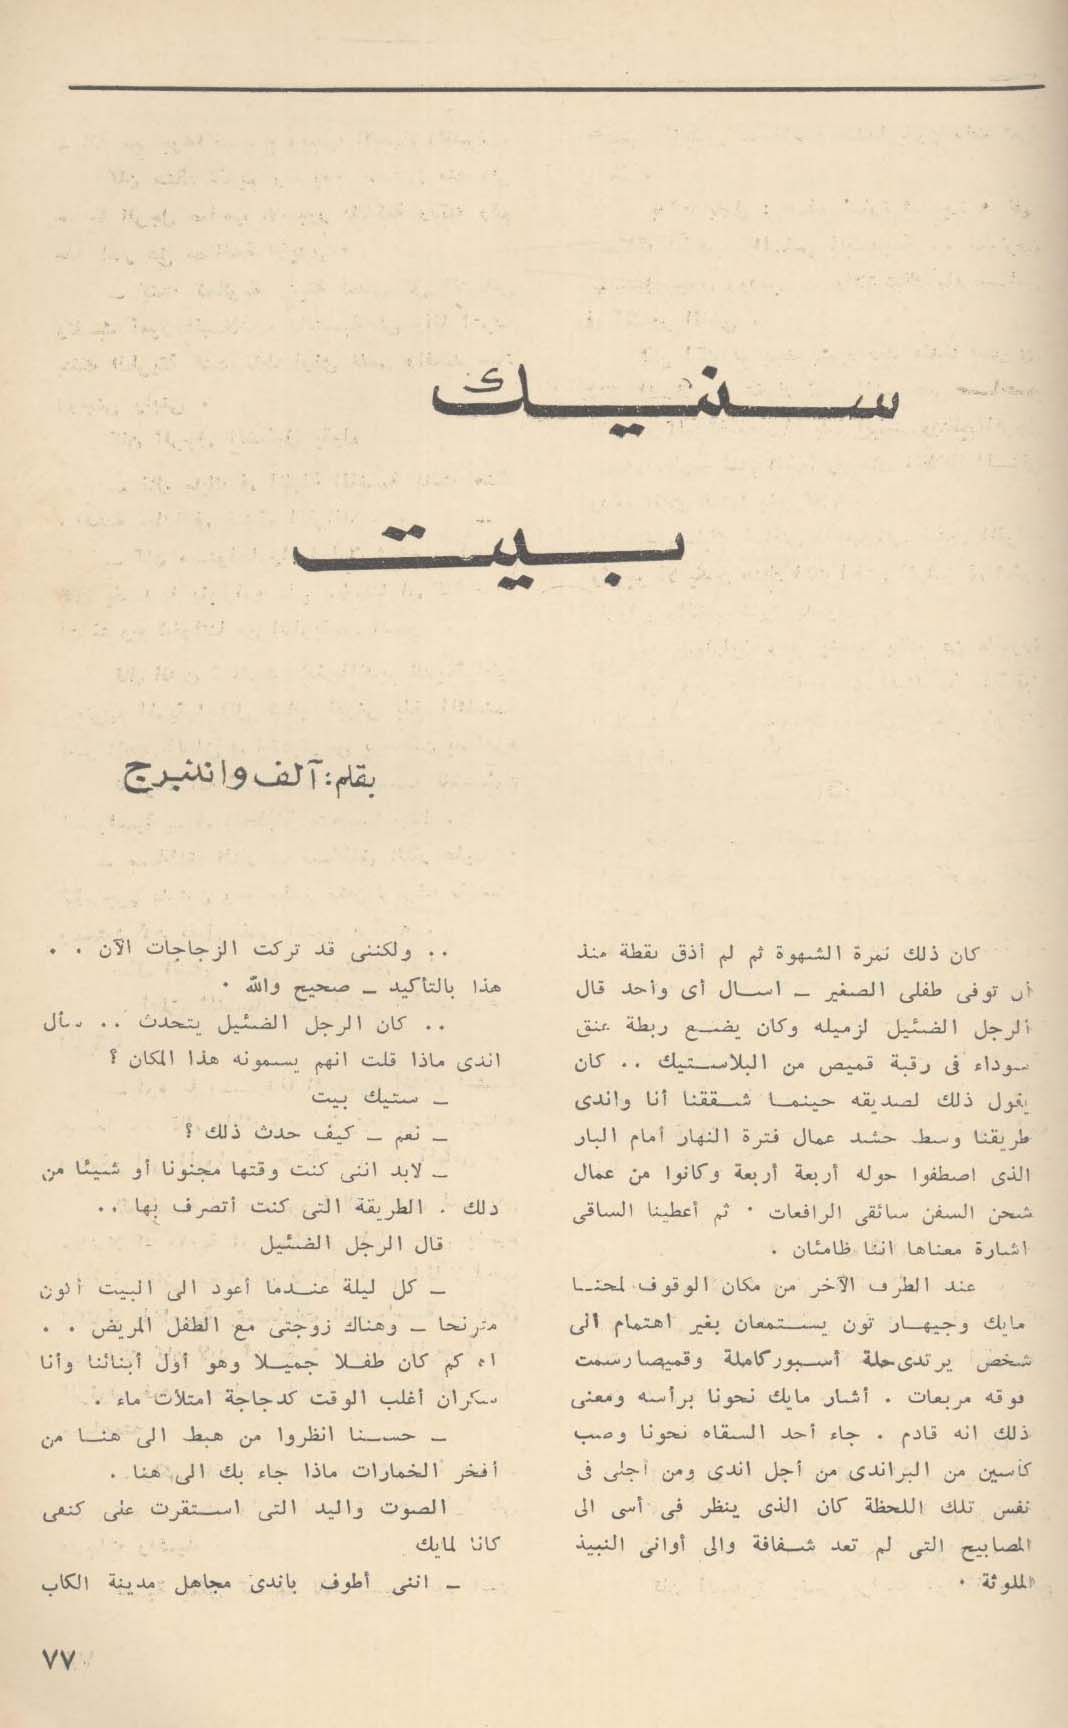 ستيك
بيت
بقلم: آلف واننبرج
كان ذلك نمرة الشهوة ثم لم أذق نقطة منذ
أن توفى طفلى الصغير ــ اسأل أى وأحد قال
الرجل الضئيل لزميله وكان يضع ربطة عنق
سوداء فى رقبة قميص من البلاستيك .. كان
يقول ذلك لصديقه حينما شققنا أنا واندى
طريقنا وسط حشد عمال فترة النهار أمام البار
الذى اصطفوا حوله أربعة أربعة وكانوا من عمال
شحن السفن سائقى الرافعات . ثم أعطينا الساقى
اشارة معناها اننا ظامئان .
عند الطرف الآخر من مكان الوقوف لمحنا
مايك وجيهار تون يستمعان بغير اهتمام الى
شخص يرتدى حلة أسبور كاملة وقميصا رسمت
فوقه مربعات . أشار مايك نحونا برأسه ومعنى
ذلك انه قادم . جاء أحد السقاه نحونا وصب
كأسين من البراندى من أجل اندى ومن أجلى فى
نفس تلك اللحظة كان الذى ينظر فى أسى الى
المصابيح التى لم تعد شفافة والى أوانى النبيذ
الملوثة .
.. ولكننى قد تركت الزجاجات الآن . .
هذا بالتأكيد ــ صحيح والله .
.. كان الرجل الضئيل يتحدث .. سأل
اندى ماذا قلت انهم يسمونه هذا المكان ؟
ــ ستيك بيت
ــ نعم ــ كيف حدث ذلك ؟
ــ لابد اننى كنت وقتها مجنونا أو شيئا من
ذلك . الطريقة التى كنت أتصرف بها ..
قال الرجل الضئيل
ــ كل ليلة عندما أعود الى البيت أكون
مترنحا ــ وهناك زوجتى مع الطفل المريض . .
اه كم كان طفلا جميلا وهو أول أبنائنا وأنا
سكران أغلب الوقت كدجاجة امتلأت ماء .
ــ حسنا انظروا من هبط الى هنا من
أفخر الخمارات ماذا جاء بك الى هنا .
الصوت واليد التى استقرت على كتفى
كانا لمايك
ــ اننى أطوف باندى مجاهل مدينة الكاب
٧٧